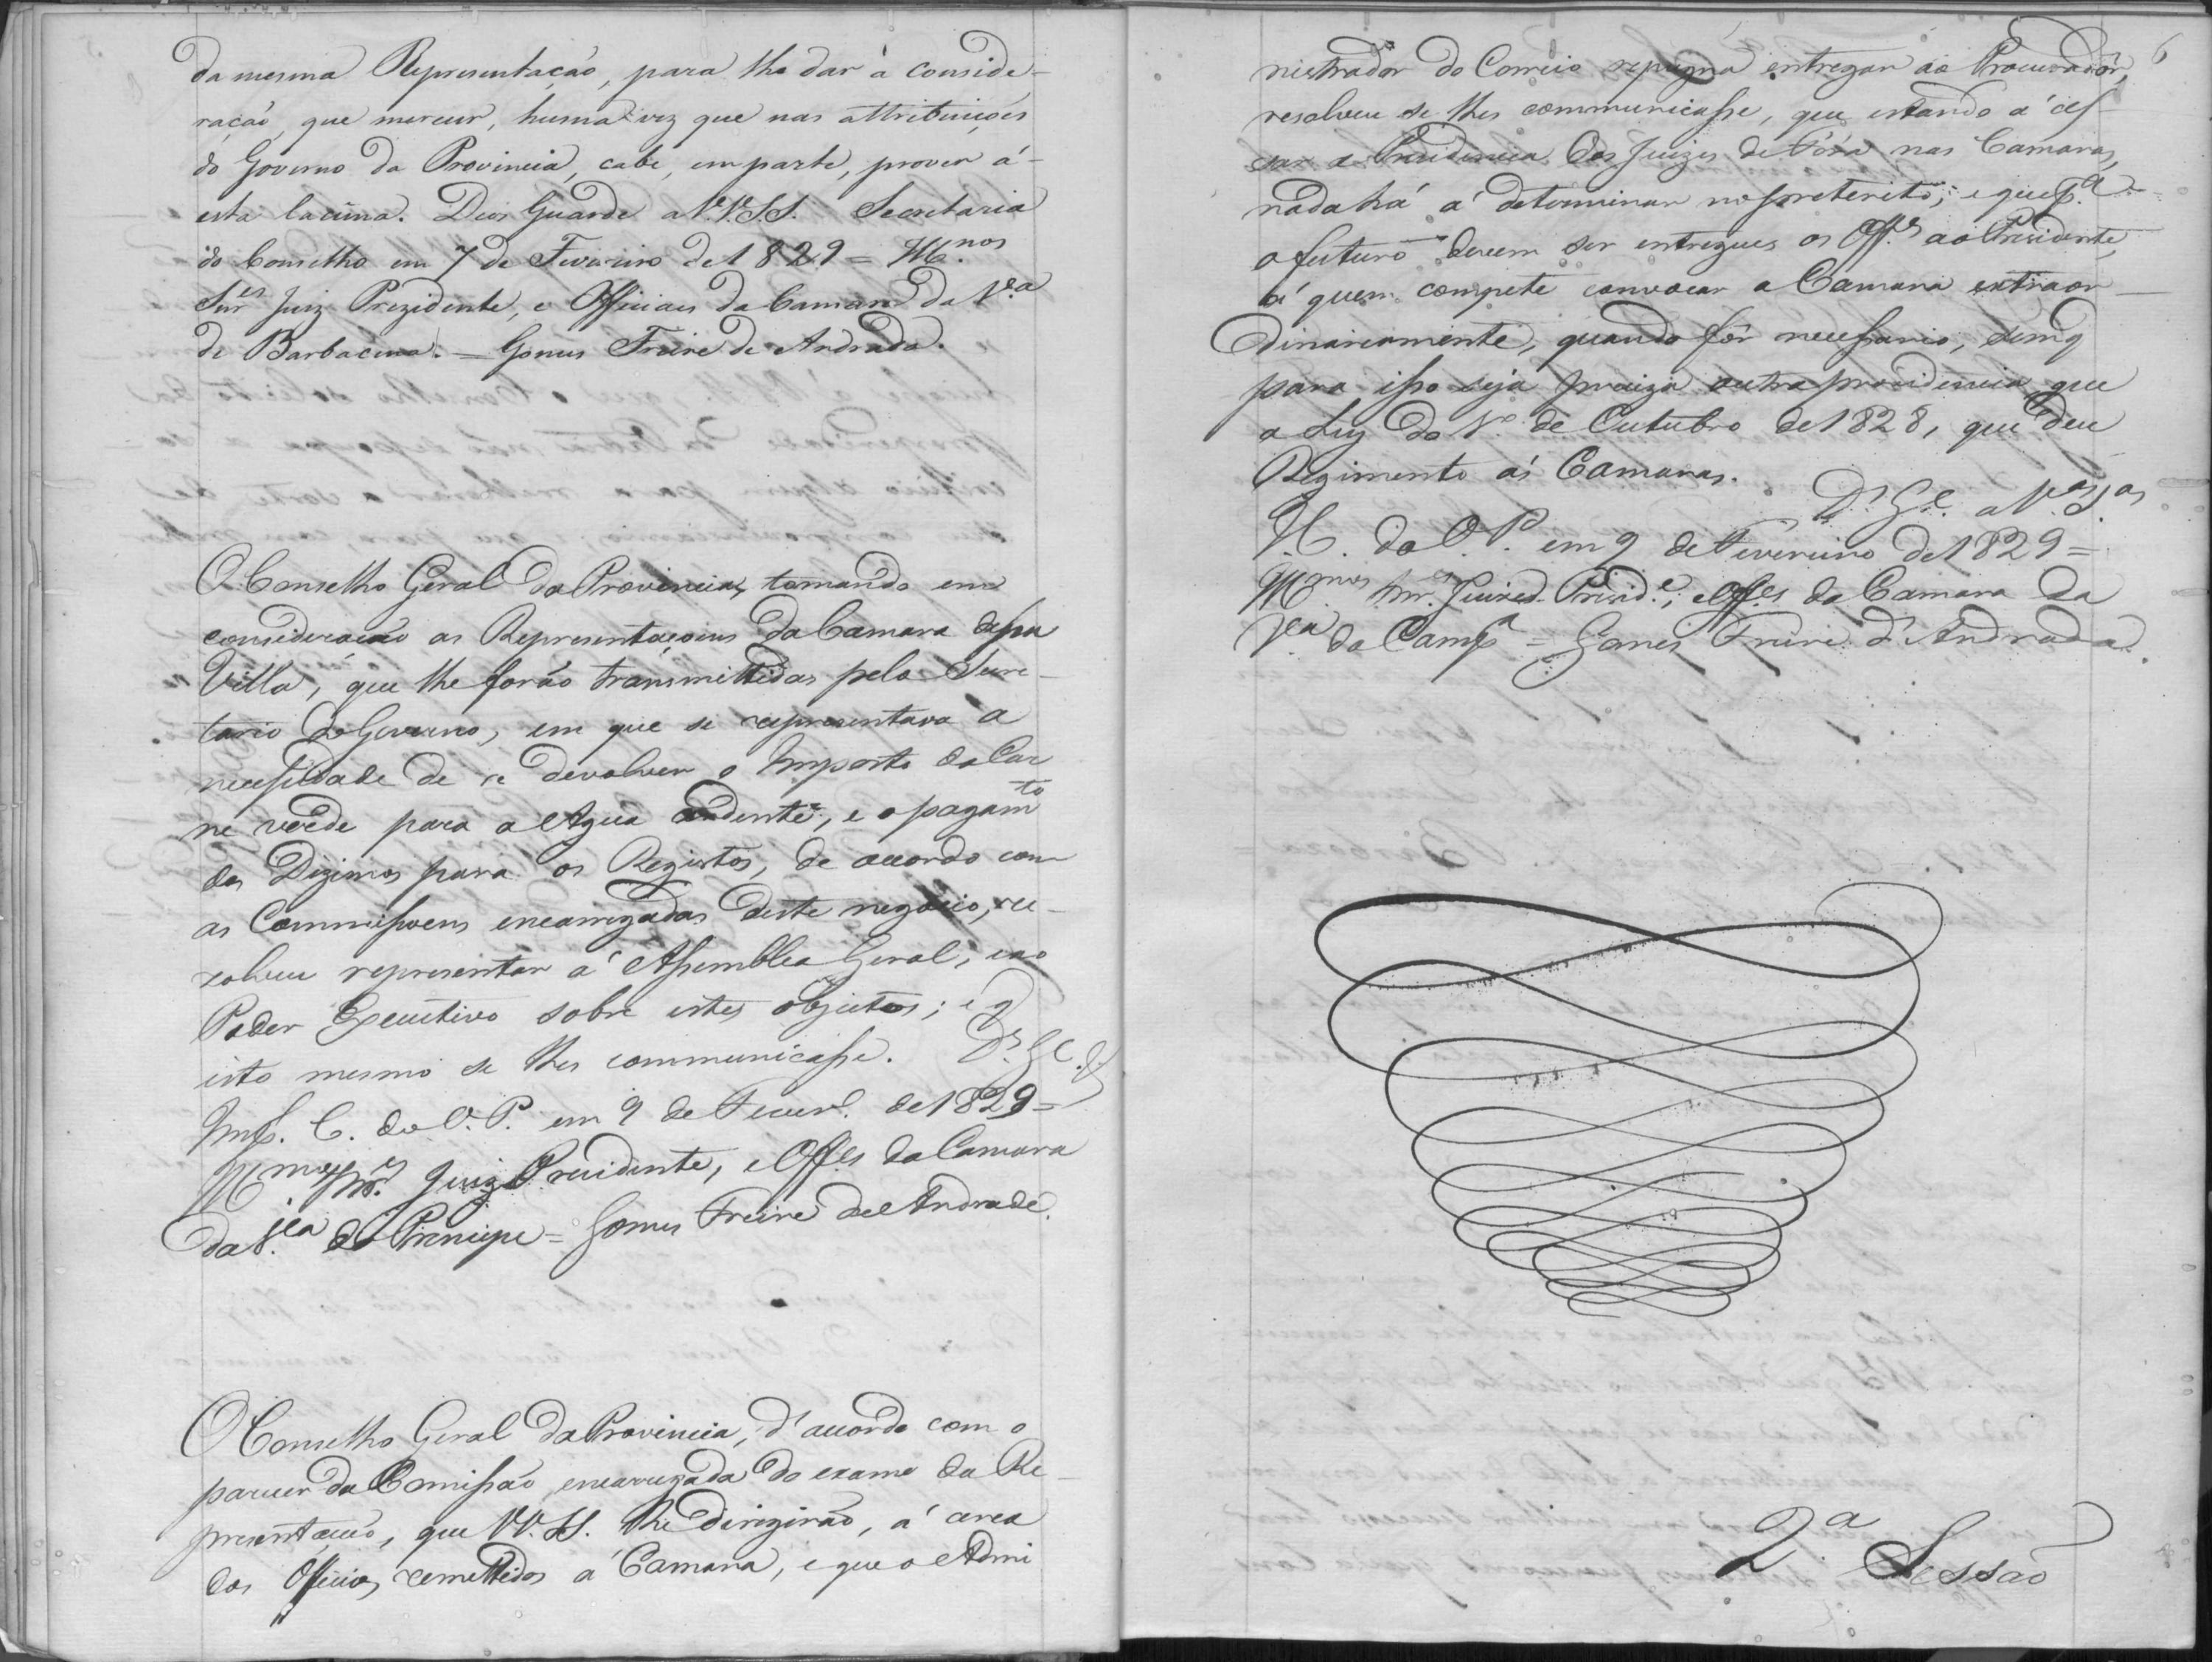 da mesma Representação, para lhe dar á conside-
ração, que merecer, huma vez que nas attribuições
do Governo da Provincia, cabe, em parte, prover á
esta lacuna. Deos Guarde a V.V.S.S. Secretaria
do Conselho em 7 de Fevereiro de 1829 = Ill.mos
Snr.es Juiz Prezidente, e Officiaes da Camara da V.a
de Barbacena. = Gomes Freire de Andrada.
O Conselho Geral da Provincia, tomando em
consideração as Representaçoens da Camara dessa
Villa, que lhe forão transmittidas pelo Secre-
tario do Governo, em que se representava a
necessidade de se devolver o Imposto da Car
ne verde para a Agua ardente, e o pagam.to
dos Dizimos para os Registos, de accordo com
as Commissoens encarregadas deste negocio, re-
zolveu representar á Assemblea Geral, e ao
Poder Executivo sobre estes objectos; e q
isto mesmo se lhes communicasse. D.s G.e a
Imp. C. do O. P. em 9 de Fever.o de 1829 =
Ill.mos Snr.es Juiz Presidente, e Off.es da Camara
da V.a do Principe = Gomes Freire de Andrade.
O Conselho Geral da Provincia, d'accordo com o
parecer da Comissão encarregada do exame da Re-
presentação, que VV.SS. lhe dirigirão, á cerca
dos Officios remettidos á Camara, e que o Admi
6
nistrador do Correio repugna entregar ao Procurador,
resolveu se lhes communicasse, que estando a ces-
sar a Presidencia dos Juizes de Fóra nas Camaras,
nada há a determinar no preterito; e que p.a
o futuro devem ser entregues os Off.os ao Presidente,
á quem compete convocar a Camara extraor-
dinariamente, quando fôr necessario, sem q
para isso seja preciza outra providencia, que
a Ley do 1.o de Outubro de 1828, que deu
Regimento ás Camaras.
D.s G.e a V.as S.as
I. C. do O. P. em 9 de Fevereiro de 1829 =
Ill.mos Snr.es Juiz Presid.e, e Off.es da Camara da
V.a da Camp.a = Gomes Freire d'Andrada.
2.a Sessão